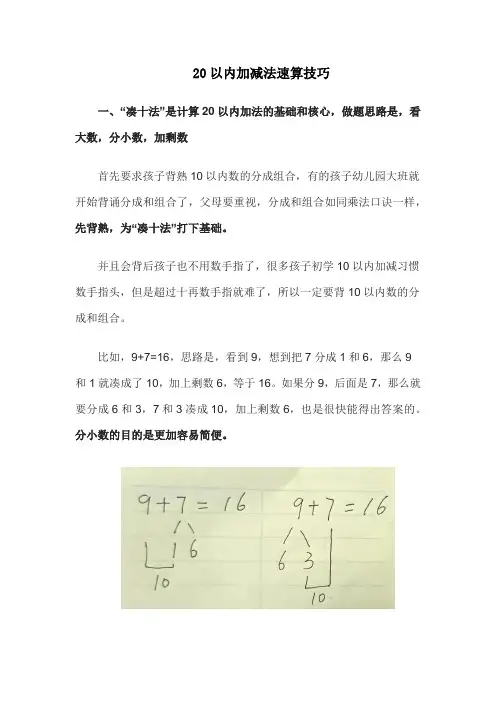 20以内加减法速算技巧
一、“凑十法”是计算20以内加法的基础和核心，做题思路是，看
大数，分小数，加剩数
首先要求孩子背熟10以内数的分成组合，有的孩子幼儿园大班就
开始背诵分成和组合了，父母要重视，分成和组合如同乘法口诀一样，
先背熟，为“凑十法”打下基础。
并且会背后孩子也不用数手指了，很多孩子初学10以内加减习惯
数手指头，但是超过十再数手指就难了，所以一定要背10以内数的分
成和组合。
比如，9+7=16，思路是，看到9，想到把7分成1和6，那么9
和1就凑成了10，加上剩数6，等于16。如果分9，后面是7，那么就
要分成6和3，7和3凑成10，加上剩数6，也是很快能得出答案的。
分小数的目的是更加容易简便。
9+7=16
1 6
10
9+7=16
6 3
10